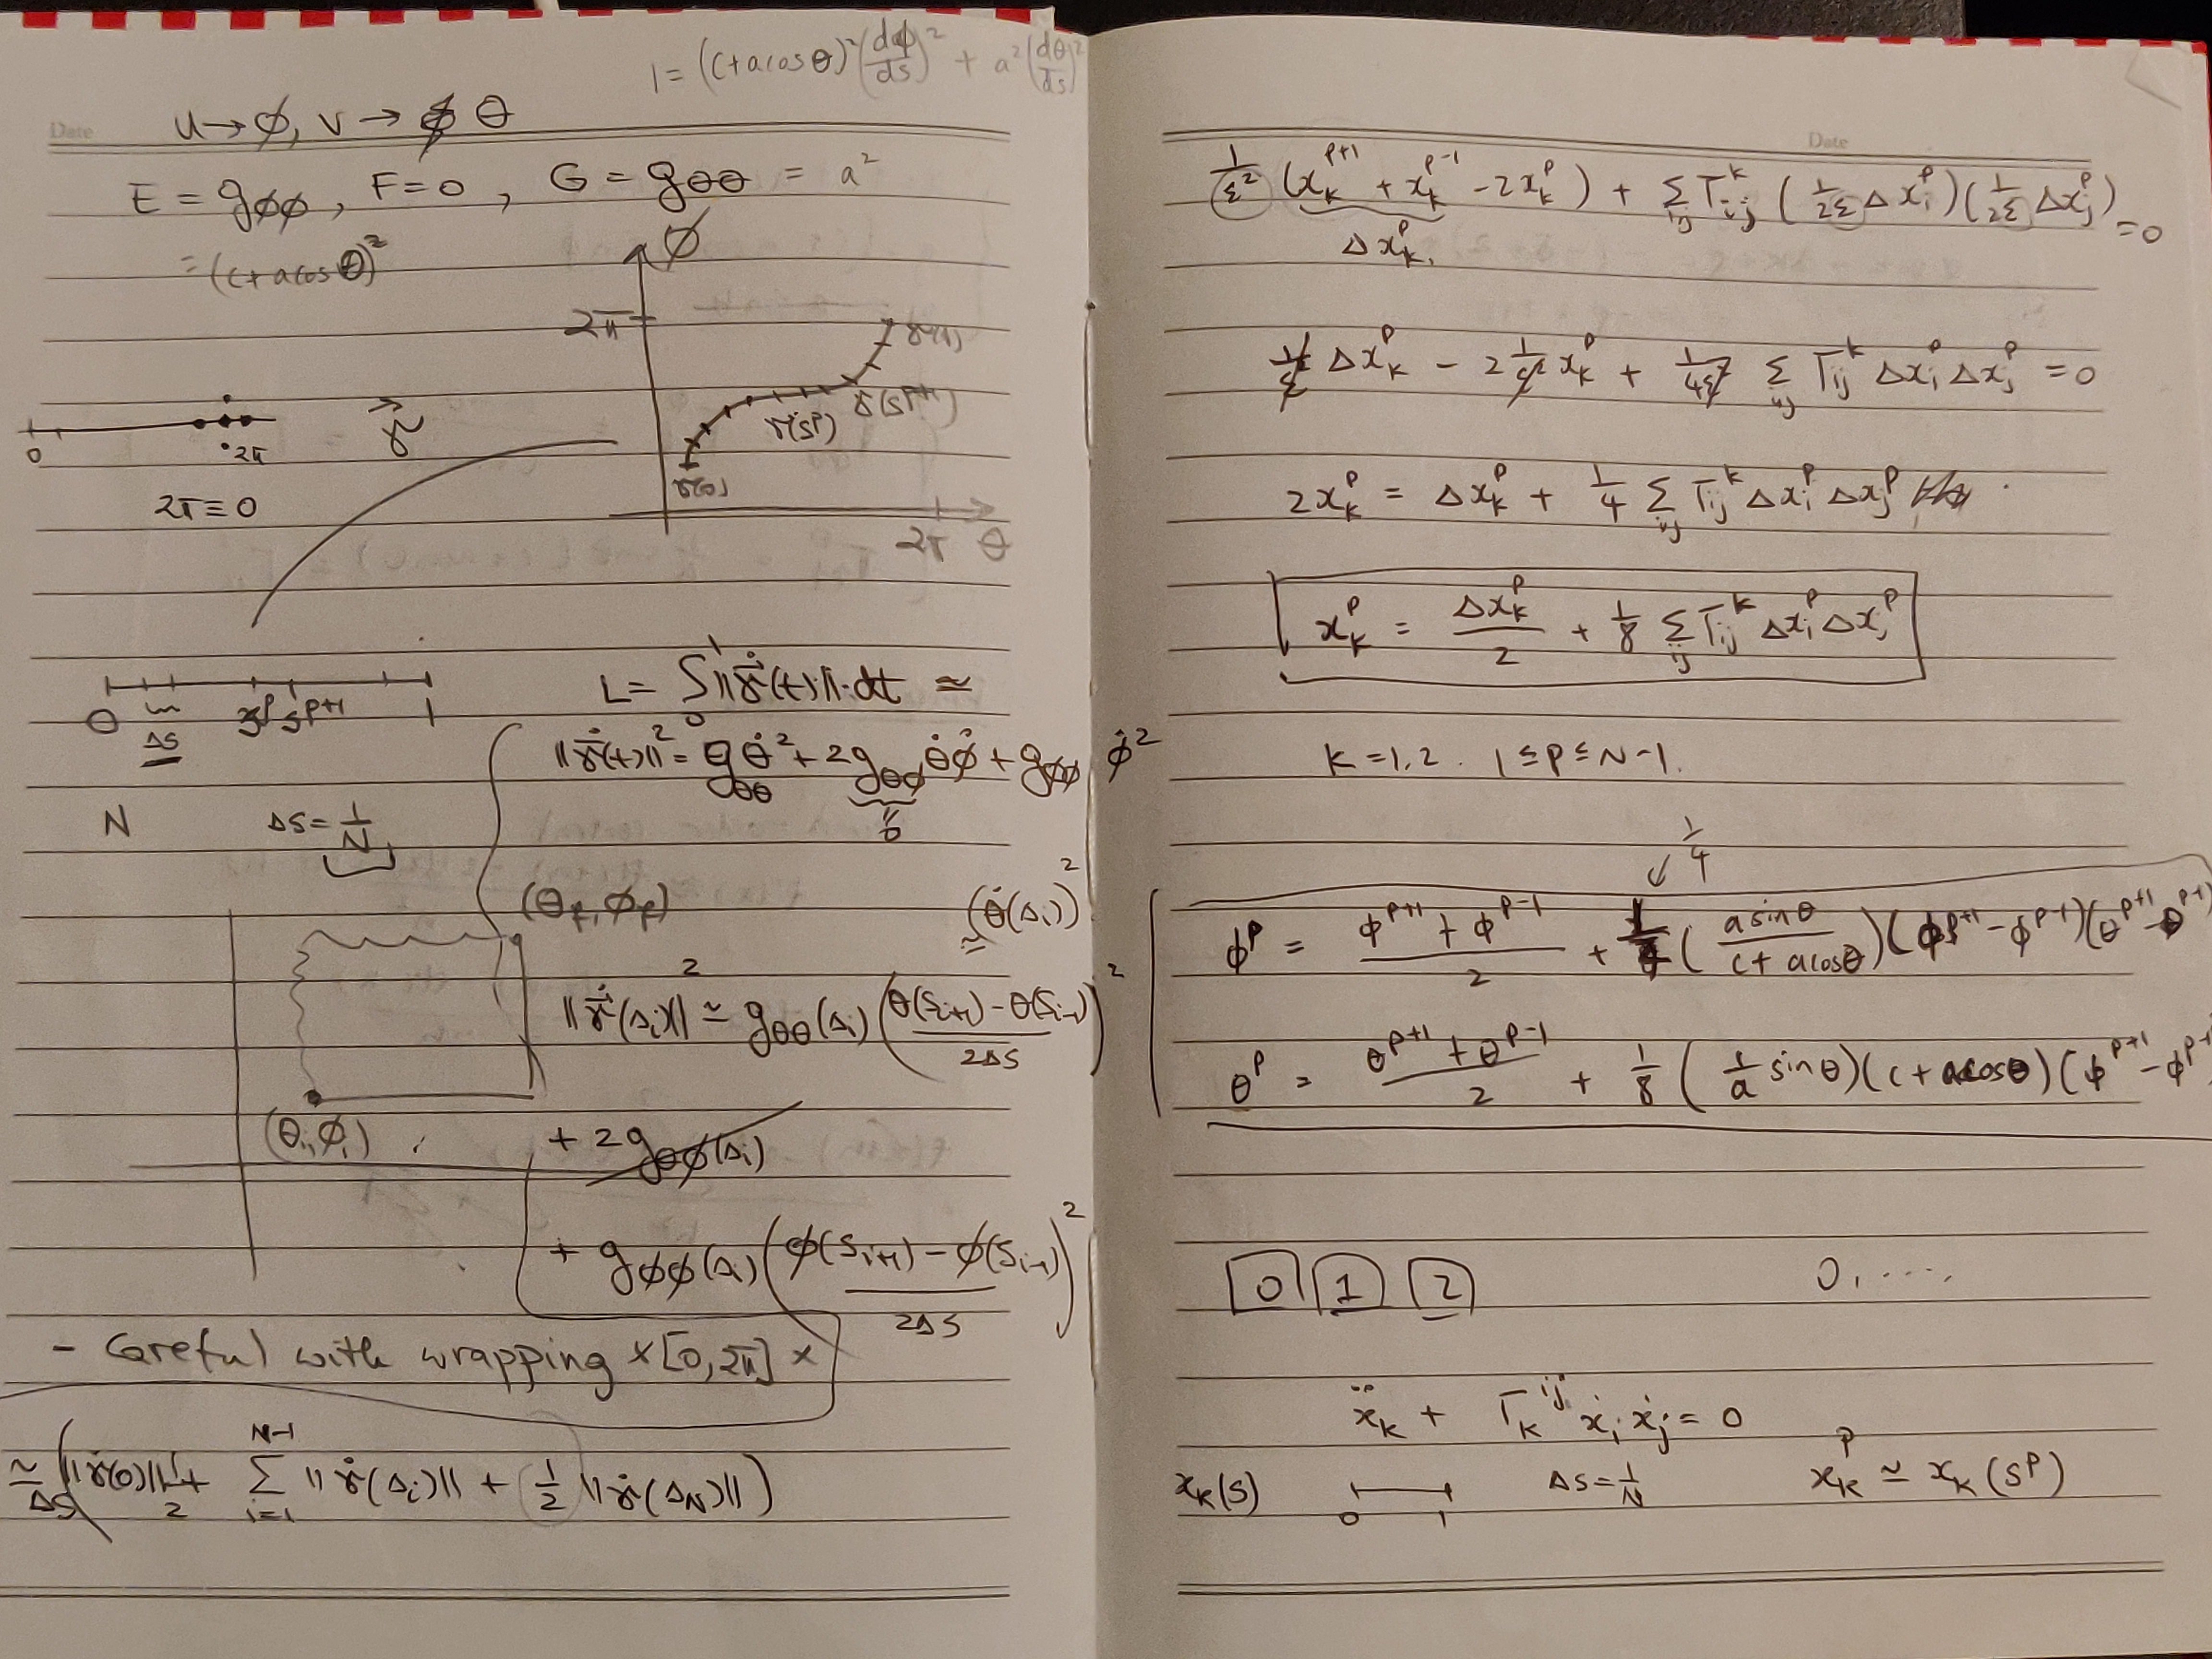 Date
1 = (c+acosθ)²(dφ/ds)² + a²(dθ/ds)²
u→φ, v→θ
E = gφφ, F=0, G = gθθ = a²
= (c+acosθ)²
φ
2π
0
2π
γ
2π=0
γ(0)
γ(s^p)
γ(s^p+1)
γ(1)
2π θ
0
1
Δs
s^p s^p+1
L = ∫₀¹ ||γ̇(t)|| dt ≃
||γ̇(t)||² = gθθ θ̇² + 2gθφ θ̇φ̇ + gφφ φ̇²
0
N
Δs = 1/N
(θf, φf)
≃ (θ̇(Δi))²
||γ̇(Δi)||² ≃ gθθ(Δi) (θ(Si+1) - θ(Si-1) / 2Δs)²
(θi, φi)
+ 2gθφ(Δi)
+ gφφ(Δi) (φ(Si+1) - φ(Si-1) / 2Δs)²
- Careful with wrapping × [0, 2π] ×
≃ Δs (||γ̇(0)|| 1/2 + Σ i=1 N-1 ||γ̇(Δi)|| + 1/2 ||γ̇(ΔN)||)
Date
1/ε² (xk^p+1 + xk^p-1 - 2xk^p) + Σij Γij^k (1/2ε Δxi^p)(1/2ε Δxj^p) = 0
Δxk^p
1/ε² Δxk^p - 2 1/ε² xk^p + 1/4ε² Σij Γij^k Δxi^p Δxj^p = 0
2xk^p = Δxk^p + 1/4 Σij Γij^k Δxi^p Δxj^p
xk^p = Δxk^p / 2 + 1/8 Σij Γij^k Δxi^p Δxj^p
k = 1,2. 1 ≤ p ≤ N-1.
1/4
φ^p = φ^p+1 + φ^p-1 / 2 + (a sinθ / c+acosθ)(φ^p+1 - φ^p-1)(θ^p+1 - θ^p-1)
θ^p = θ^p+1 + θ^p-1 / 2 + 1/8 (1/a sinθ)(c+acosθ)(φ^p+1 - φ^p-1
0 1 2
0, ....
ẍk + Γk^ij ẋi ẋj = 0
xk(s)
0 1
Δs = 1/N
xk^p ≃ xk(s^p)